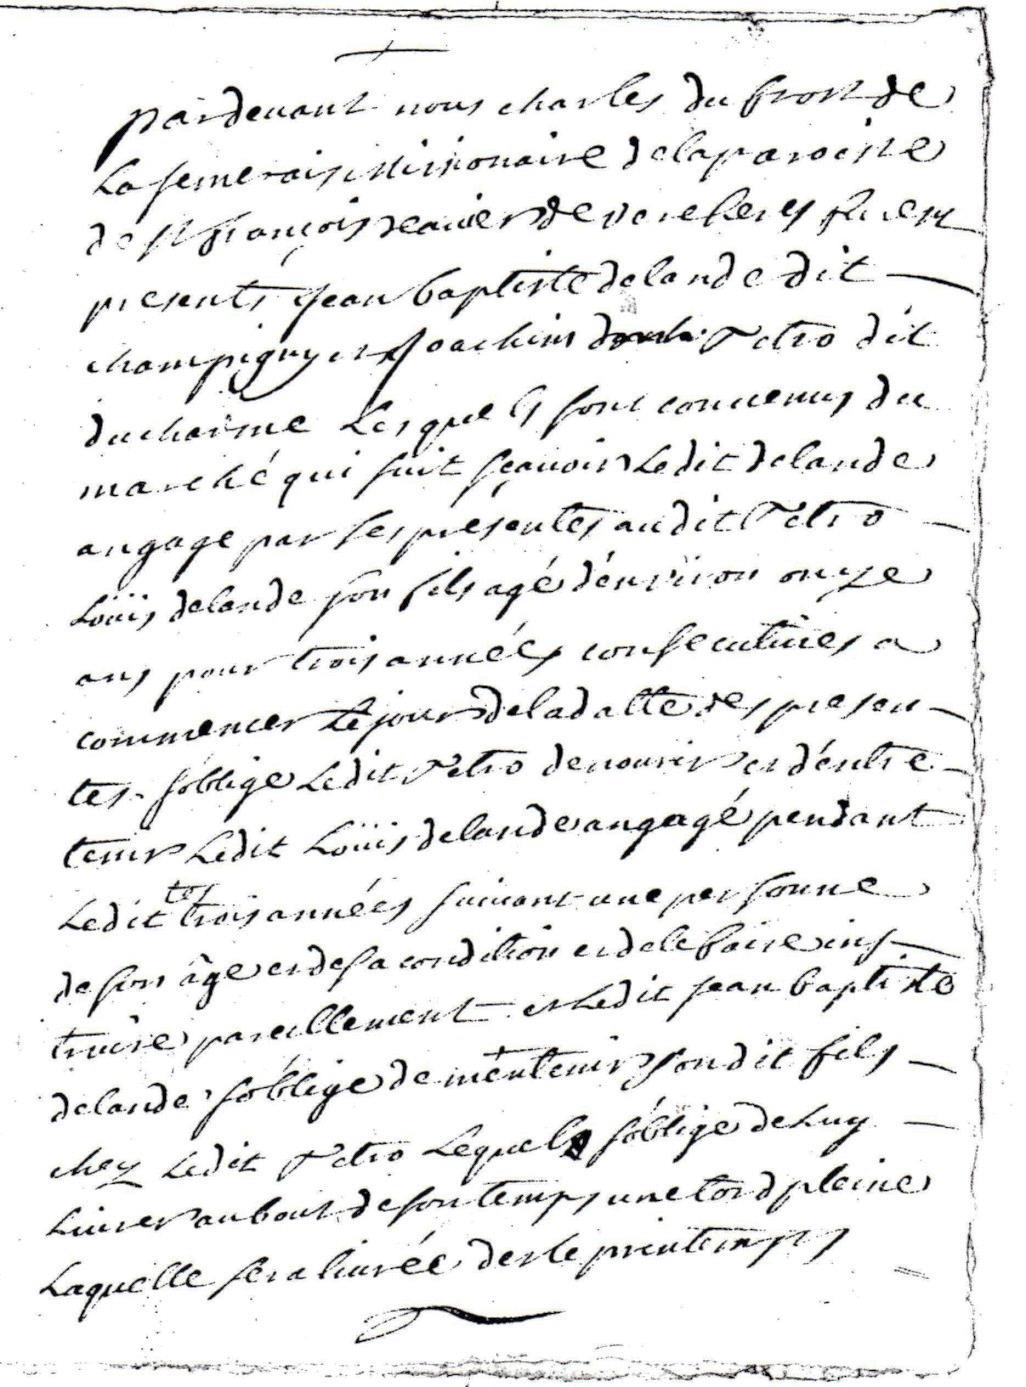 pardevant nous charles du frost de
La jemerais missionaire de la paroisse
de st françois xavier de vercheres furent
presents jean baptiste delande dit
champigny et Joachim Petro dit
ducharme Lesquels sont convenus du
marché qui suit sçavoir Ledit delande
angage par les presentes audit Petro
Loüis delande son fils agé d'enviion onze
ans pour trois années consecutives a
commencer Le jour de la datte des presen
tes. s'oblige Ledit Petro de nourir et d'entre
tenir Ledit Loüis delande angagé pendant
Ledittes trois années suivant une personne
de son âge et de sa condition et de le faire ins
truire pareillement et Ledit jean baptiste
delande s'oblige de mentenir son dit fils
chez Ledit Petro Lequel s'oblige de Luy
Livrer au bout de son temps une tord pleine
Laquelle sera livrée des le printemps